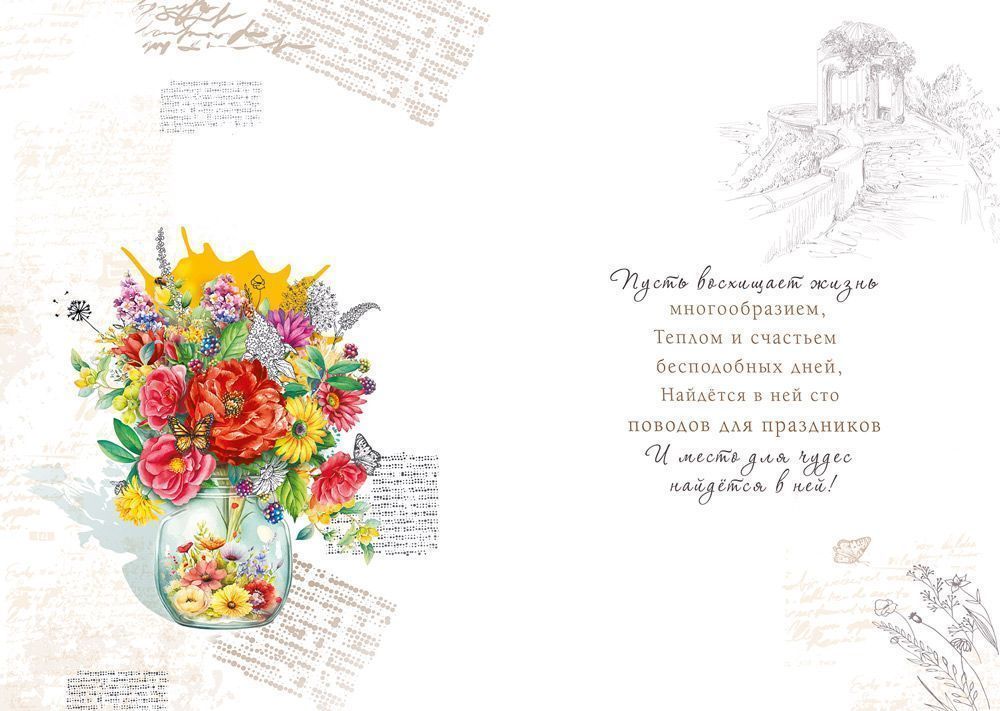 Пусть восхищает жизнь
многообразием,
Теплом и счастьем
бесподобных дней,
Найдётся в ней сто
поводов для праздников
И место для чудес
найдётся в ней!